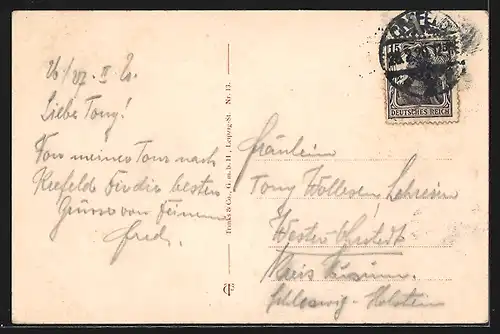 26/27. II 20.
Liebe Tony!
Von meiner Tour nach
Krefeld Dir die besten
Grüsse von Deinem
Fred.
Trinks & Co., G. m. b. H., Leipzig-St. Nr. 13.
DEUTSCHES REICH
Fräulein
Tony Wollesen, Lehrerin
Wester-Ohrstedt
Kreis Husum.
Schleswig-Holstein